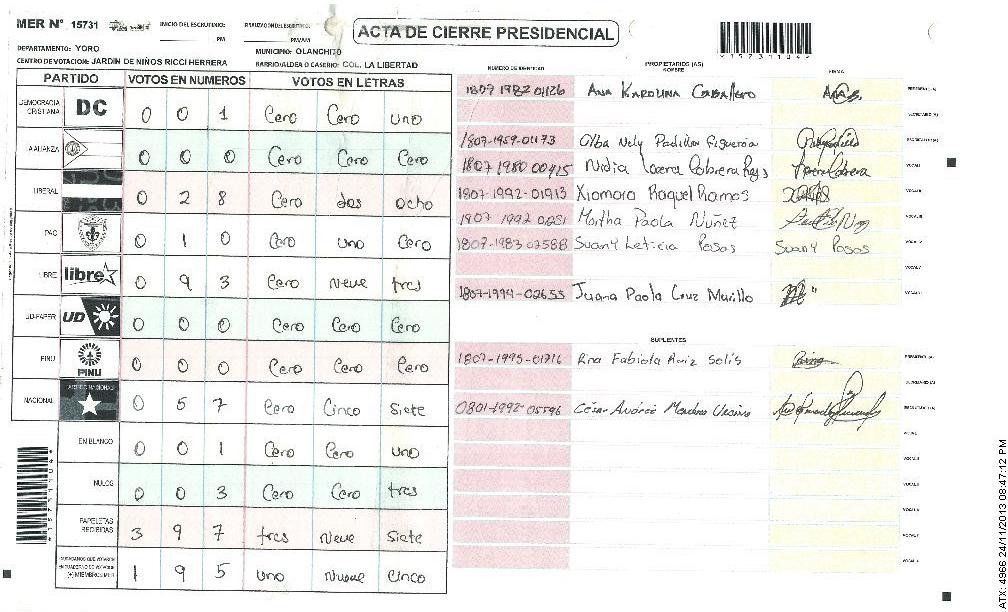 MER N° 15731 INICIO DEL ESCRUTINIO: PM PM/AM
ACTA DE CIERRE PRESIDENCIAL
*15731104*
DEPARTAMENTO: YORO MUNICIPIO: OLANCHITO
CENTRO DE VOTACION: JARDIN DE NIÑOS RICCI HERRERA BARRIO/ALDEA O CASERIO: COL. LA LIBERTAD
PARTIDO VOTOS EN NUMEROS VOTOS EN LETRAS
DEMOCRACIA CRISTIANA DC 0 0 1 Cero Cero uno
ALIANZA 0 0 0 Cero Cero Cero
LIBERAL 0 2 8 Cero dos ocho
PAC 0 1 0 Cero uno Cero
LIBRE libre 0 9 3 Cero Neve tres
UD-FAPER UD 0 0 0 Cero Cero Cero
PINU PINU 0 0 0 Cero Cero Cero
NACIONAL PARTIDO NACIONAL 0 5 7 Cero Cinco Siete
EN BLANCO 0 0 1 Cero Cero uno
NULOS 0 0 3 Cero Cero tres
PAPELETAS RECIBIDAS 3 9 7 tres Neve Siete
CIUDADANOS QUE VOTARON EN CUADERNO DE VOTACION (+) MIEMBROS MER 1 9 5 uno Nueve Cinco
NUMERO DE IDENTIDAD PROPIETARIOS (AS) NOMBRE FIRMA
1807 1982 01126 Ana Karolina Caballero PRESIDENTE (A)
SECRETARIO (A)
1807-1959-01173 Olba Nely Padilla Figueroa ESCRUTADOR (A)
1807 1980 00915 Nidia Lorena Cabrera Reyes VOCAL I
1807-1992-01913 Xiomara Raquel Ramos VOCAL II
1807 1992 Martha Paola Nuñez VOCAL III
1807-1983 02588 Suany Leticia Posas Suany Posas VOCAL IV
VOCAL V
1807-1994-02655 Juana Paola Cruz Murillo VOCAL VI
SUPLENTES
1807-1995-01716 Rina Fabiola Ruiz Solis PRESIDENTE (A)
SECRETARIO (A)
0801-1992-05596 César Andrés ESCRUTADOR (A)
VOCAL I
VOCAL II
VOCAL III
VOCAL IV
VOCAL V
VOCAL VI
*15731104*
ATX: 4966 24/11/2013 08:47:12 PM